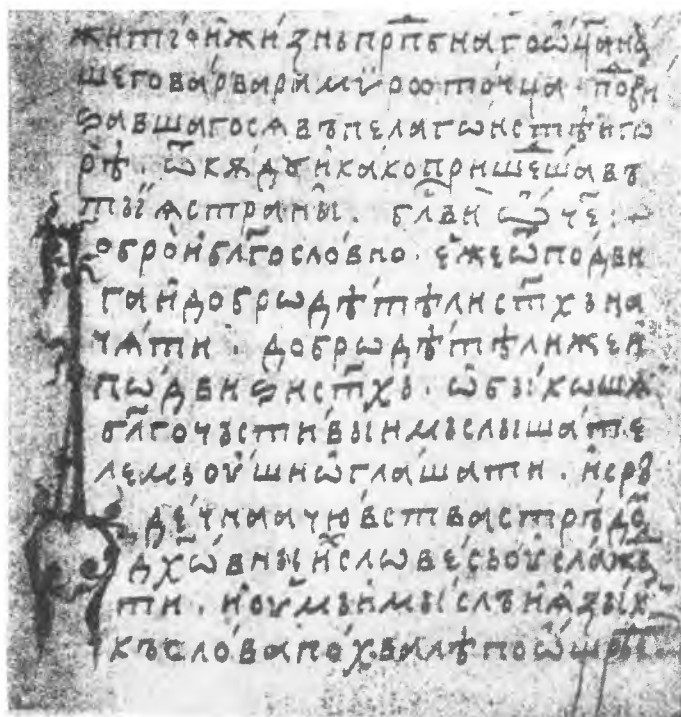 житїе и жизнь прпбнаго ѿца на
шего варвара мѵроточца · по
вавшаго сѧ въ пелагѡнистѣи го
рѣ . ѿкѫдѹ и како пришеша въ
тыѧ страны . бл҃ви ѿче :
обро и бл҃гословно . еже ѿ подви
га и добрѡдѣтѣли ст҃хъ на
чѧти . добрѡдѣтѣли же и
пѡдвиѕи ст҃хъ . ѡбыкѡшѧ
бл҃гочъстивыимъ слышате
лемъ оушиѡглашати . и срь
дечнаа чювства стрѣ
дх҃ѡвны и словесъ оуслаж
ти . и оумъ и мысль и ѧзык
къ слова похвалѣ поѡщр